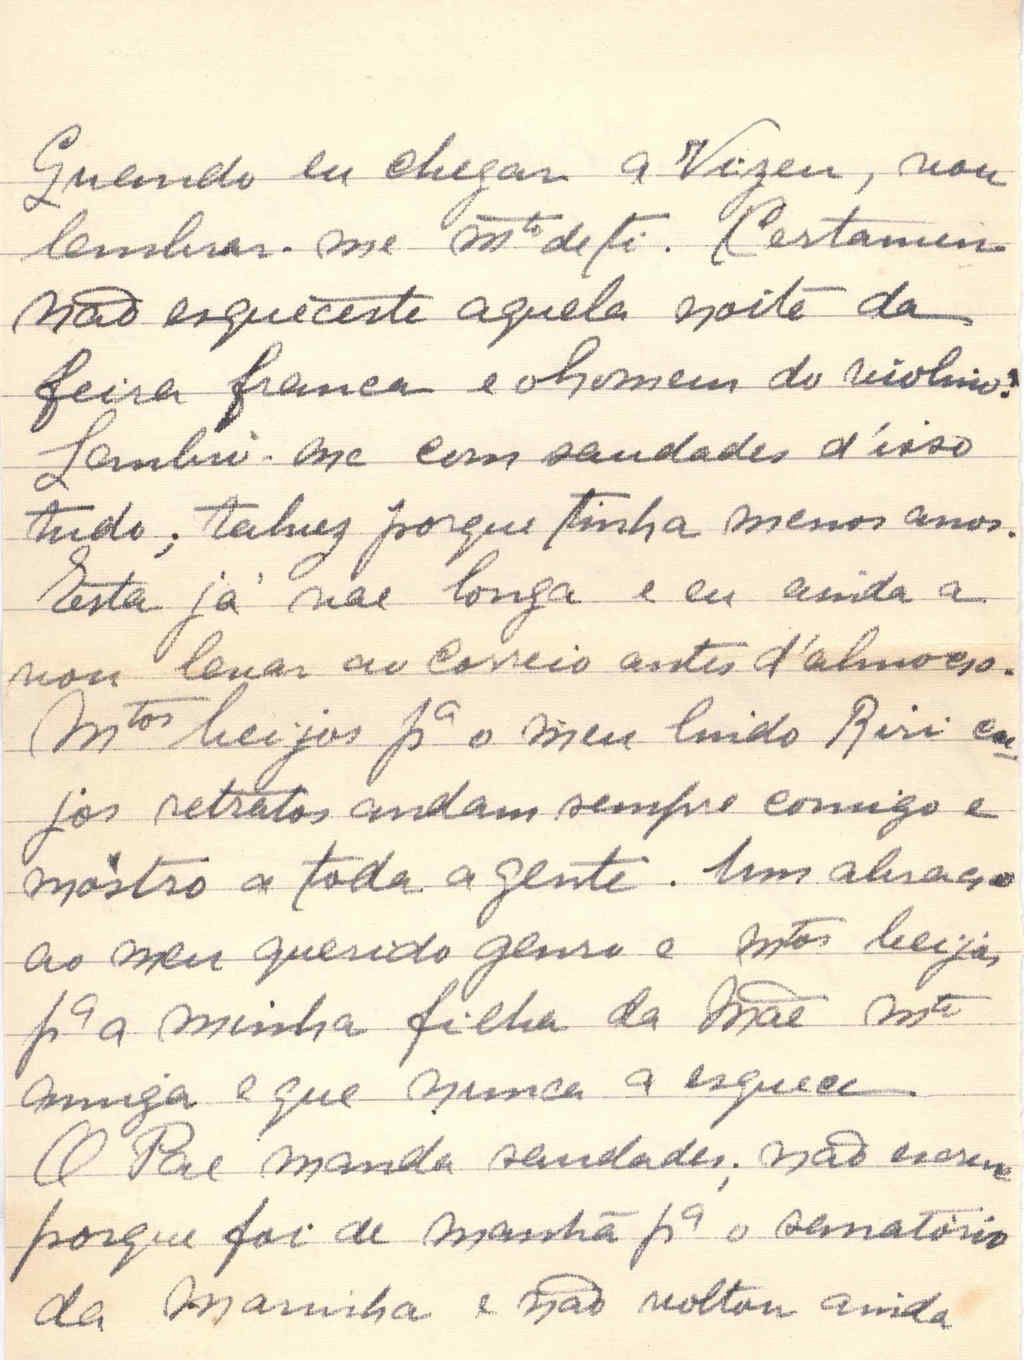 Quando eu chegar a Vizeu, vou
lembrar-me mto de ti. Certamen
não esqueceste aquela noite da
feira franca e o homem do violino?
Lembro-me com saudades d'isso
tudo; talvez porque tinha menos anos.
Esta já vae longa e eu ainda a
vou levar ao correio antes d'almoço.
Mtos beijos pª o meu lindo Riri cu-
jos retratos andam sempre comigo e
móstro a toda a gente. Um abraço
ao meu querido genro e mtos beijos
pª a minha filha da Mãe mto
amiga e que nunca a esquece
O Pae manda saudades; não escreve
porque foi de manhã pª o sanatório
da Marinha e não voltou ainda